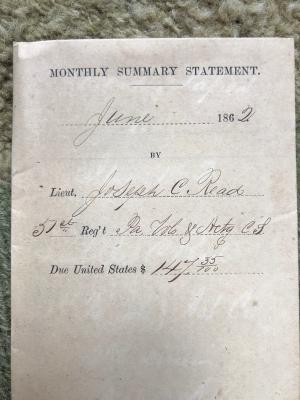 MONTHLY SUMMARY STATEMENT.
June 1862
BY
Lieut. Joseph C. Read
51st Reg't Pa Vols & Actg C.S.
Due United States $ 147 35/100